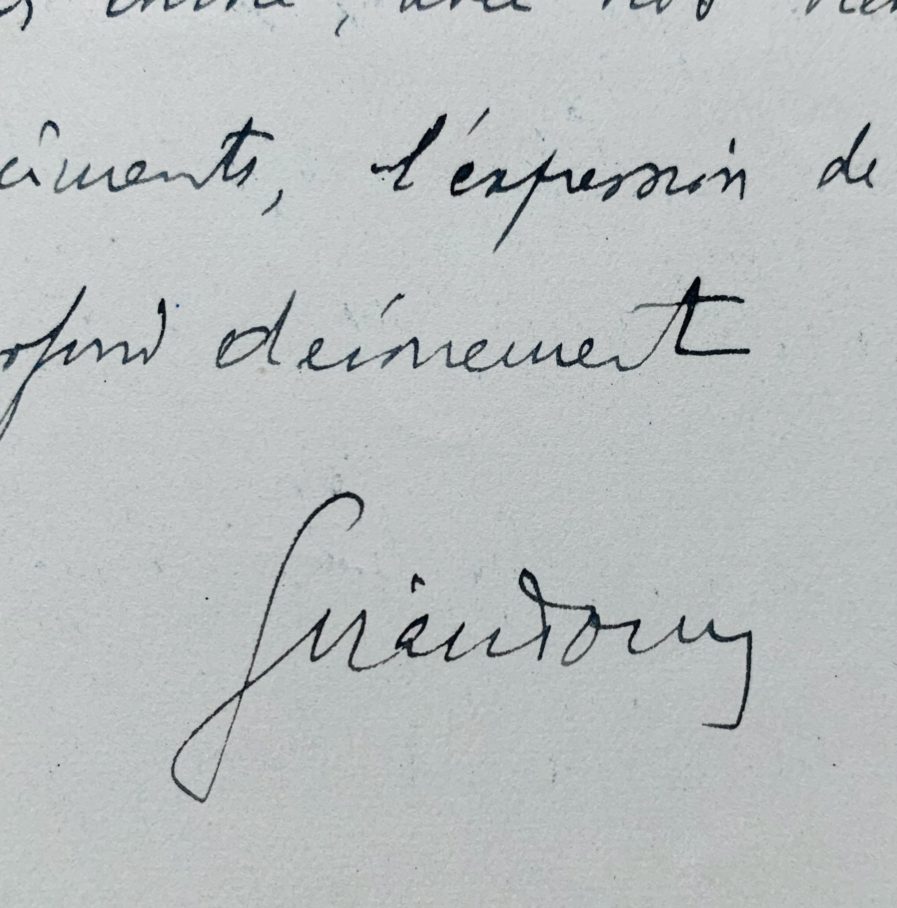 avec nos
ciments, l'expression de
ofond dévouement
Giraudoux